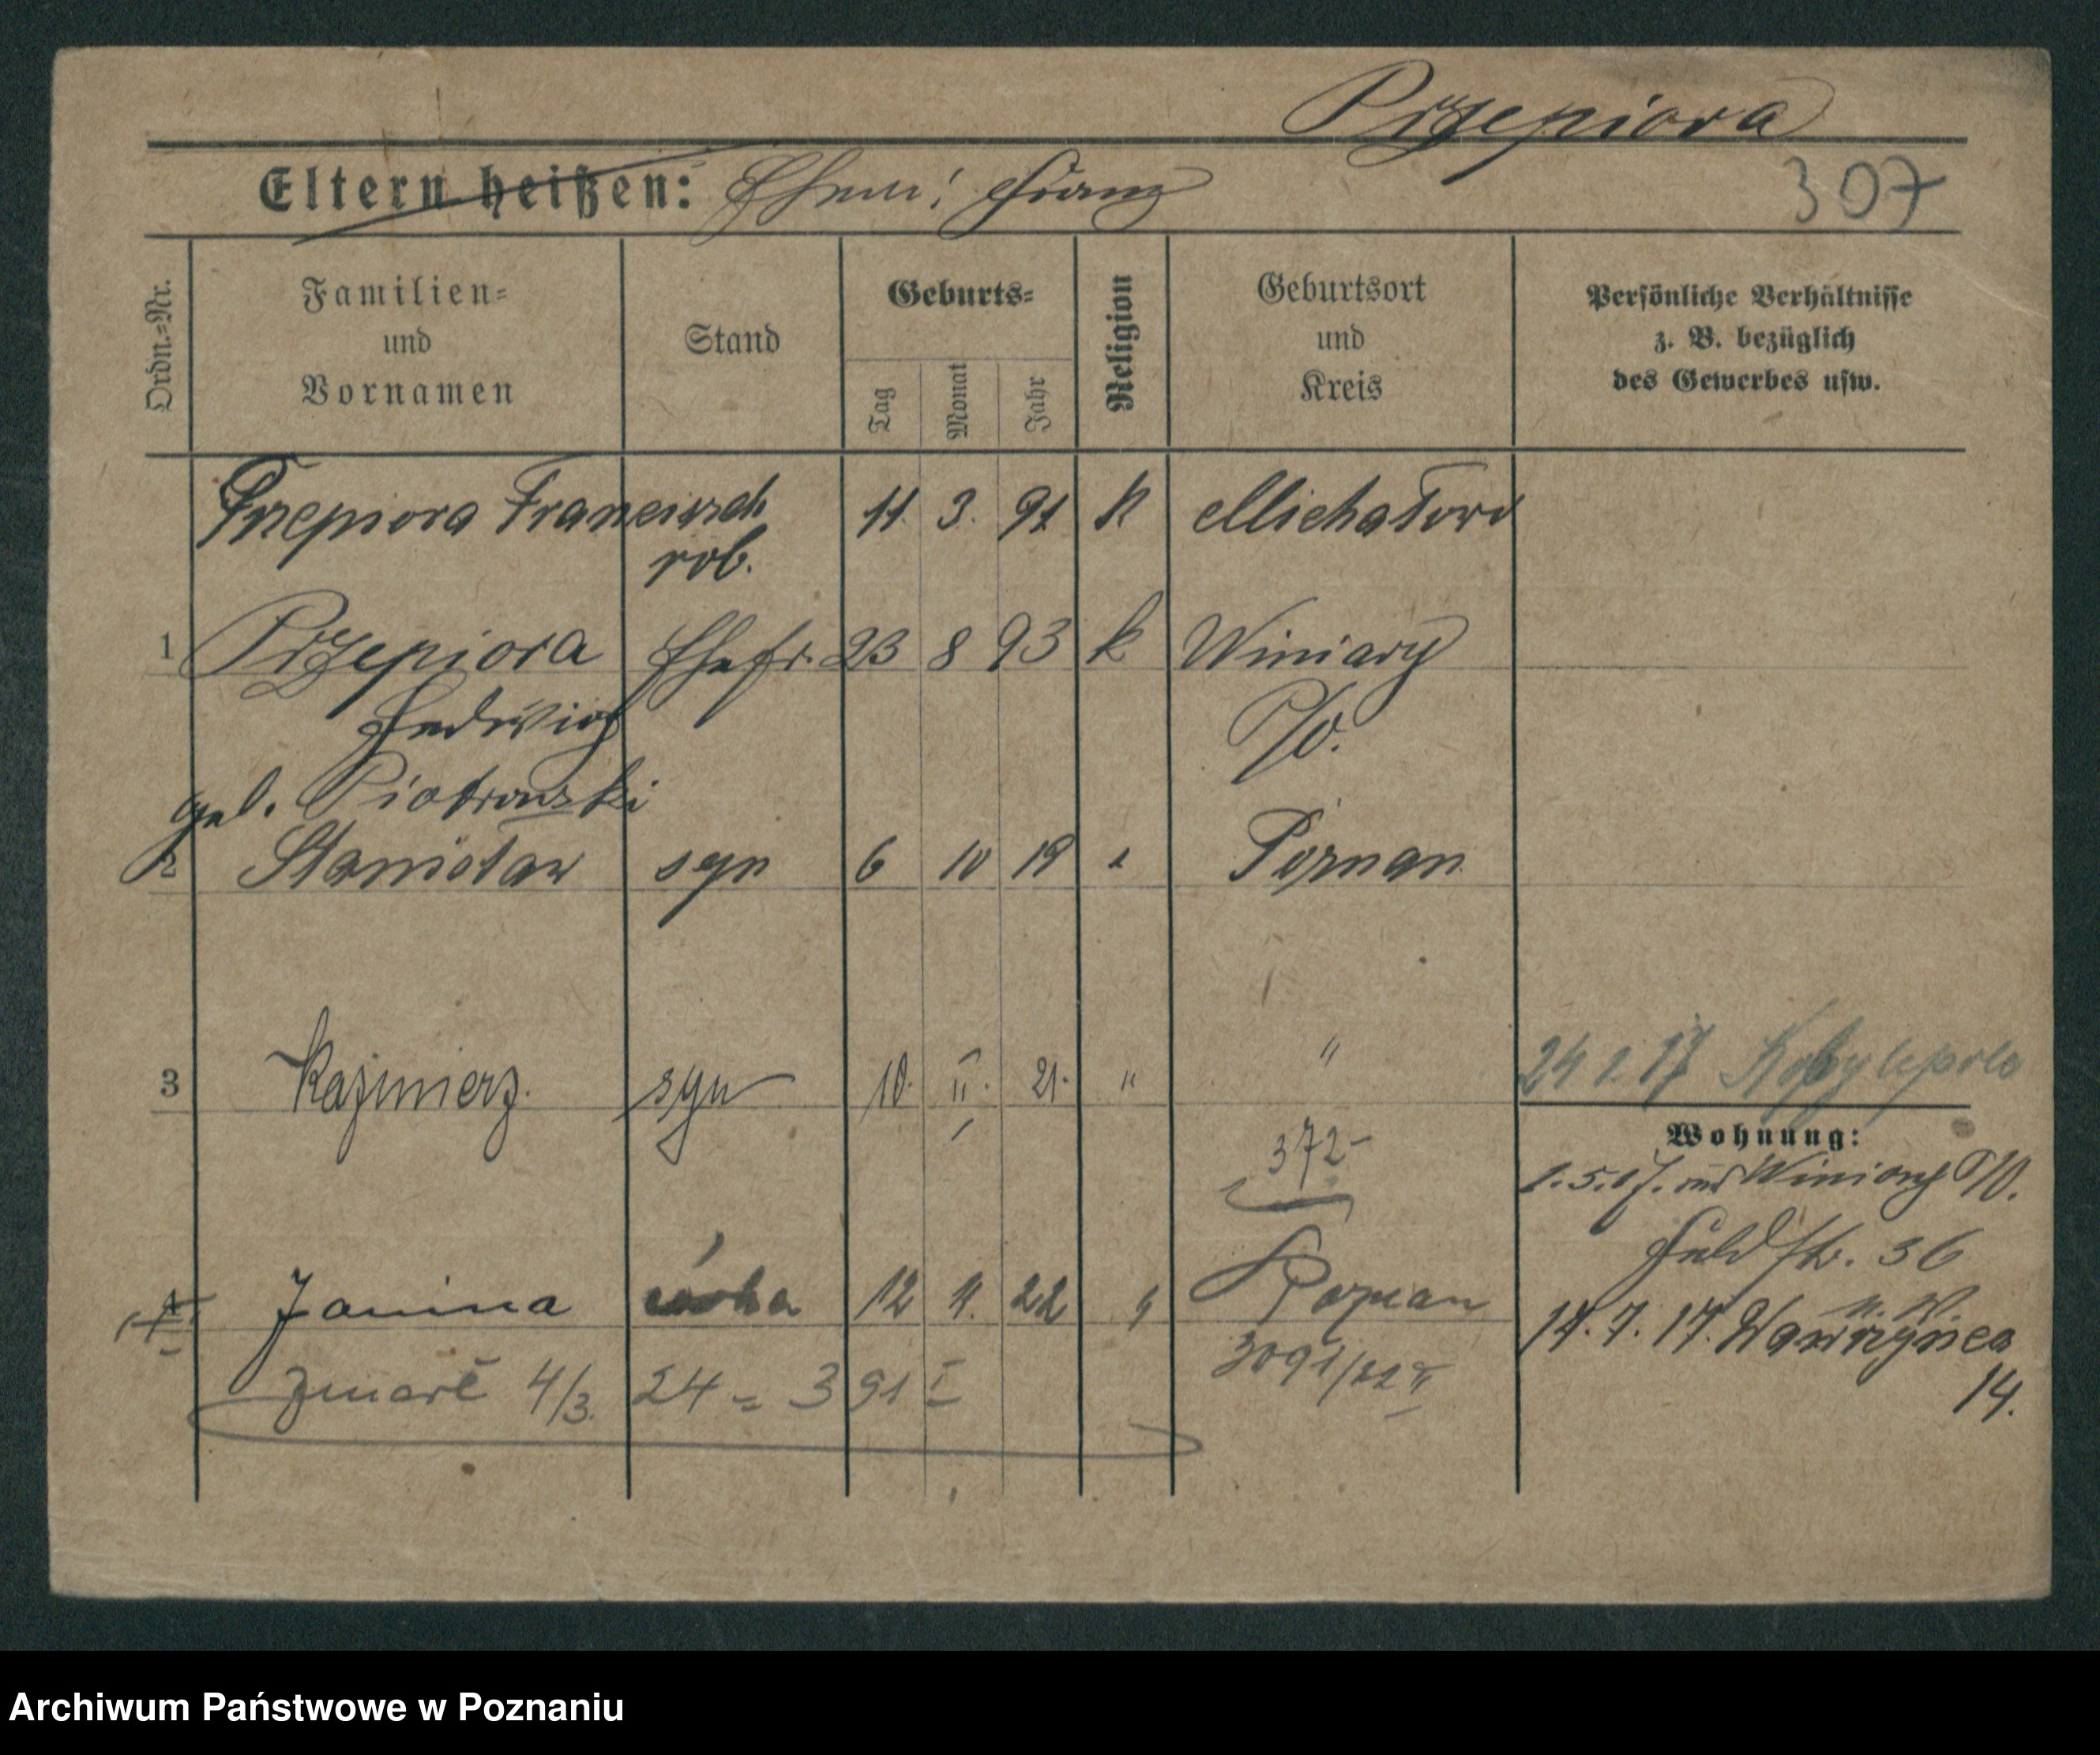 Przepiora
Eltern heißen: Ehem: Franz
307
Ordn.-Nr.
Familien-
und
Vornamen
Stand
Geburts-
Tag
Monat
Jahr
Religion
Geburtsort
und
Kreis
Persönliche Verhältnisse
z. B. bezüglich
des Gewerbes usw.
Przepiora Franciszek 11. 3. 91 K Michałowo
rob.
1 Przepiora Ehefr. 23 8 93 k Winiary
Hedwig P/O.
geb. Piotrowski
2 Stanisław syn 6 10 19 Poznan
3 Kazimierz. syn 10. II. 21. " "
24 2. 17 Kobylepole
372-
Wohnung:
1. 5. 17. Winiary P/O.
Feldstr. 36
4 Janina córka 12 11. 22 " Poznan
14. 7. 17. Wawrzyńca
14.
zmarł 4/3. 24 = 391 I
3091/22 II
Archiwum Państwowe w Poznaniu